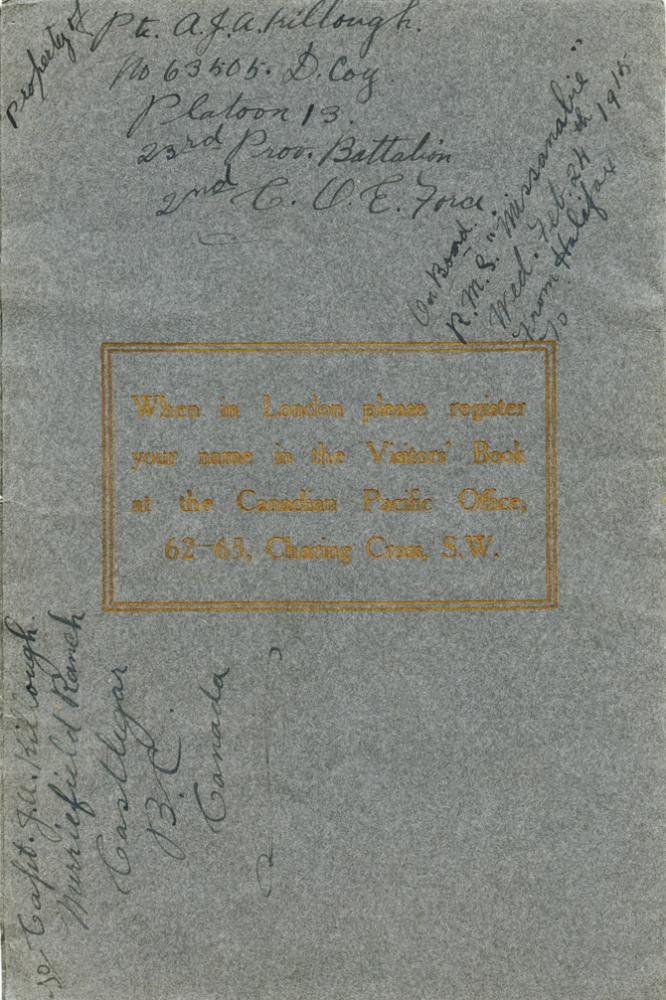 Property of
Pte. A.J.A. Killough.
No 63505. D. Coy
Platoon 13.
23rd Prov. Battalion
2nd C. O. E. Force
On Board
R.M.S. "Missanabie"
Wed. Feb. 24th 1915
From Halifax
to
When in London please register
your name in the Visitors' Book
at the Canadian Pacific Office,
62-65, Charing Cross, S.W.
To Capt. J.A. Killough
Murriefield Ranch
Castlegar
B.C.
Canada